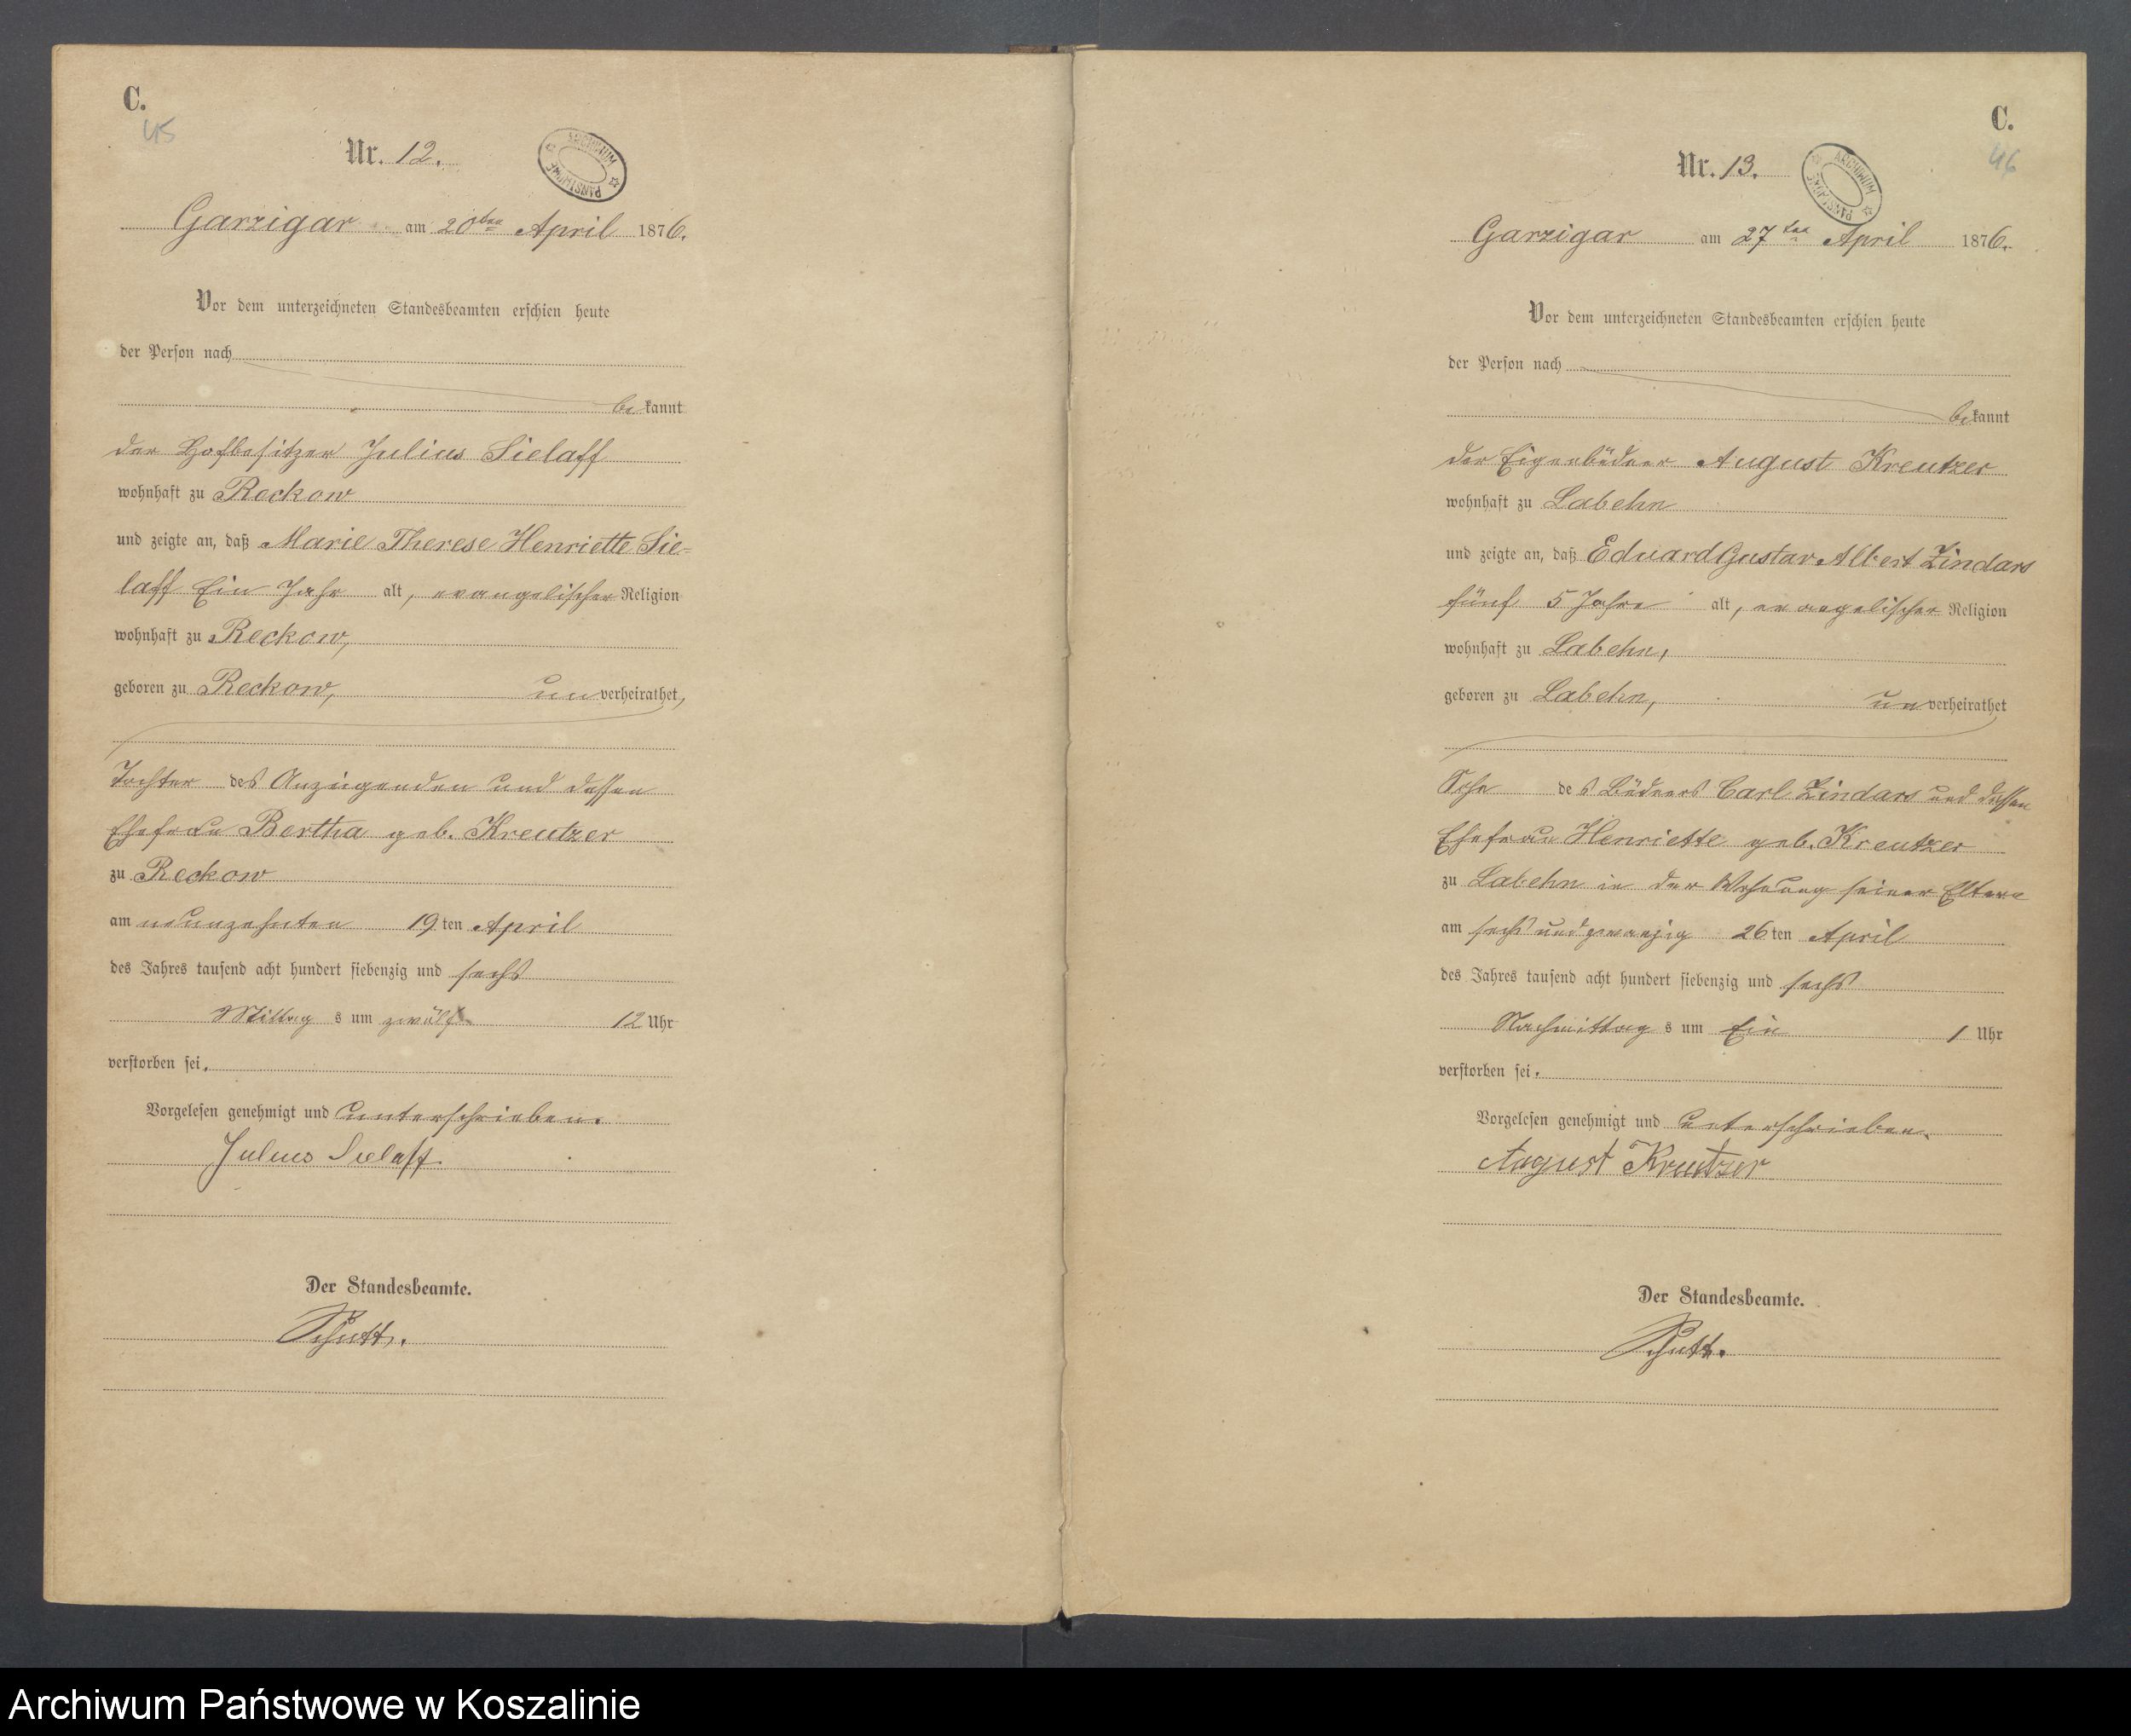 C.
45
Nr. 12.
ARCHIWUM PAŃSTWOWE
Garzigar am 20ten April 1876.
Vor dem unterzeichneten Standesbeamten erschien heute
der Person nach
bekannt
der Hofbesitzer Julius Sielaff
wohnhaft zu Reckow
und zeigte an, daß Marie Therese Henriette Sie=
laff Ein Jahr alt, evangelischer Religion
wohnhaft zu Reckow,
geboren zu Reckow, unverheirathet,
Tochter des Anzeigenden und dessen
Ehefrau Bertha geb. Kreutzer
zu Reckow
am neunzehnten 19ten April
des Jahres tausend acht hundert siebenzig und sechs
Mittags um zwölf 12 Uhr
verstorben sei.
Vorgelesen genehmigt und unterschrieben.
Julius Sielaff
Der Standesbeamte.
Schutt.
C.
46
Nr. 13.
ARCHIWUM PAŃSTWOWE
Garzigar am 27ten April 1876.
Vor dem unterzeichneten Standesbeamten erschien heute
der Person nach
bekannt
der Eigenbüdner August Kreutzer
wohnhaft zu Labehn
und zeigte an, daß Eduard Gustav Albert Zindars
fünf 5 Jahre alt, evangelischer Religion
wohnhaft zu Labehn,
geboren zu Labehn, unverheirathet
Sohn des Büdners Carl Zindars und dessen
Ehefrau Henriette geb. Kreutzer
zu Labehn in der Wohnung seiner Eltern
am sechs und zwanzig 26ten April
des Jahres tausend acht hundert siebenzig und sechs
Nachmittags um Ein 1 Uhr
verstorben sei.
Vorgelesen genehmigt und unterschrieben.
August Kreutzer
Der Standesbeamte.
Schutt.
Archiwum Państwowe w Koszalinie